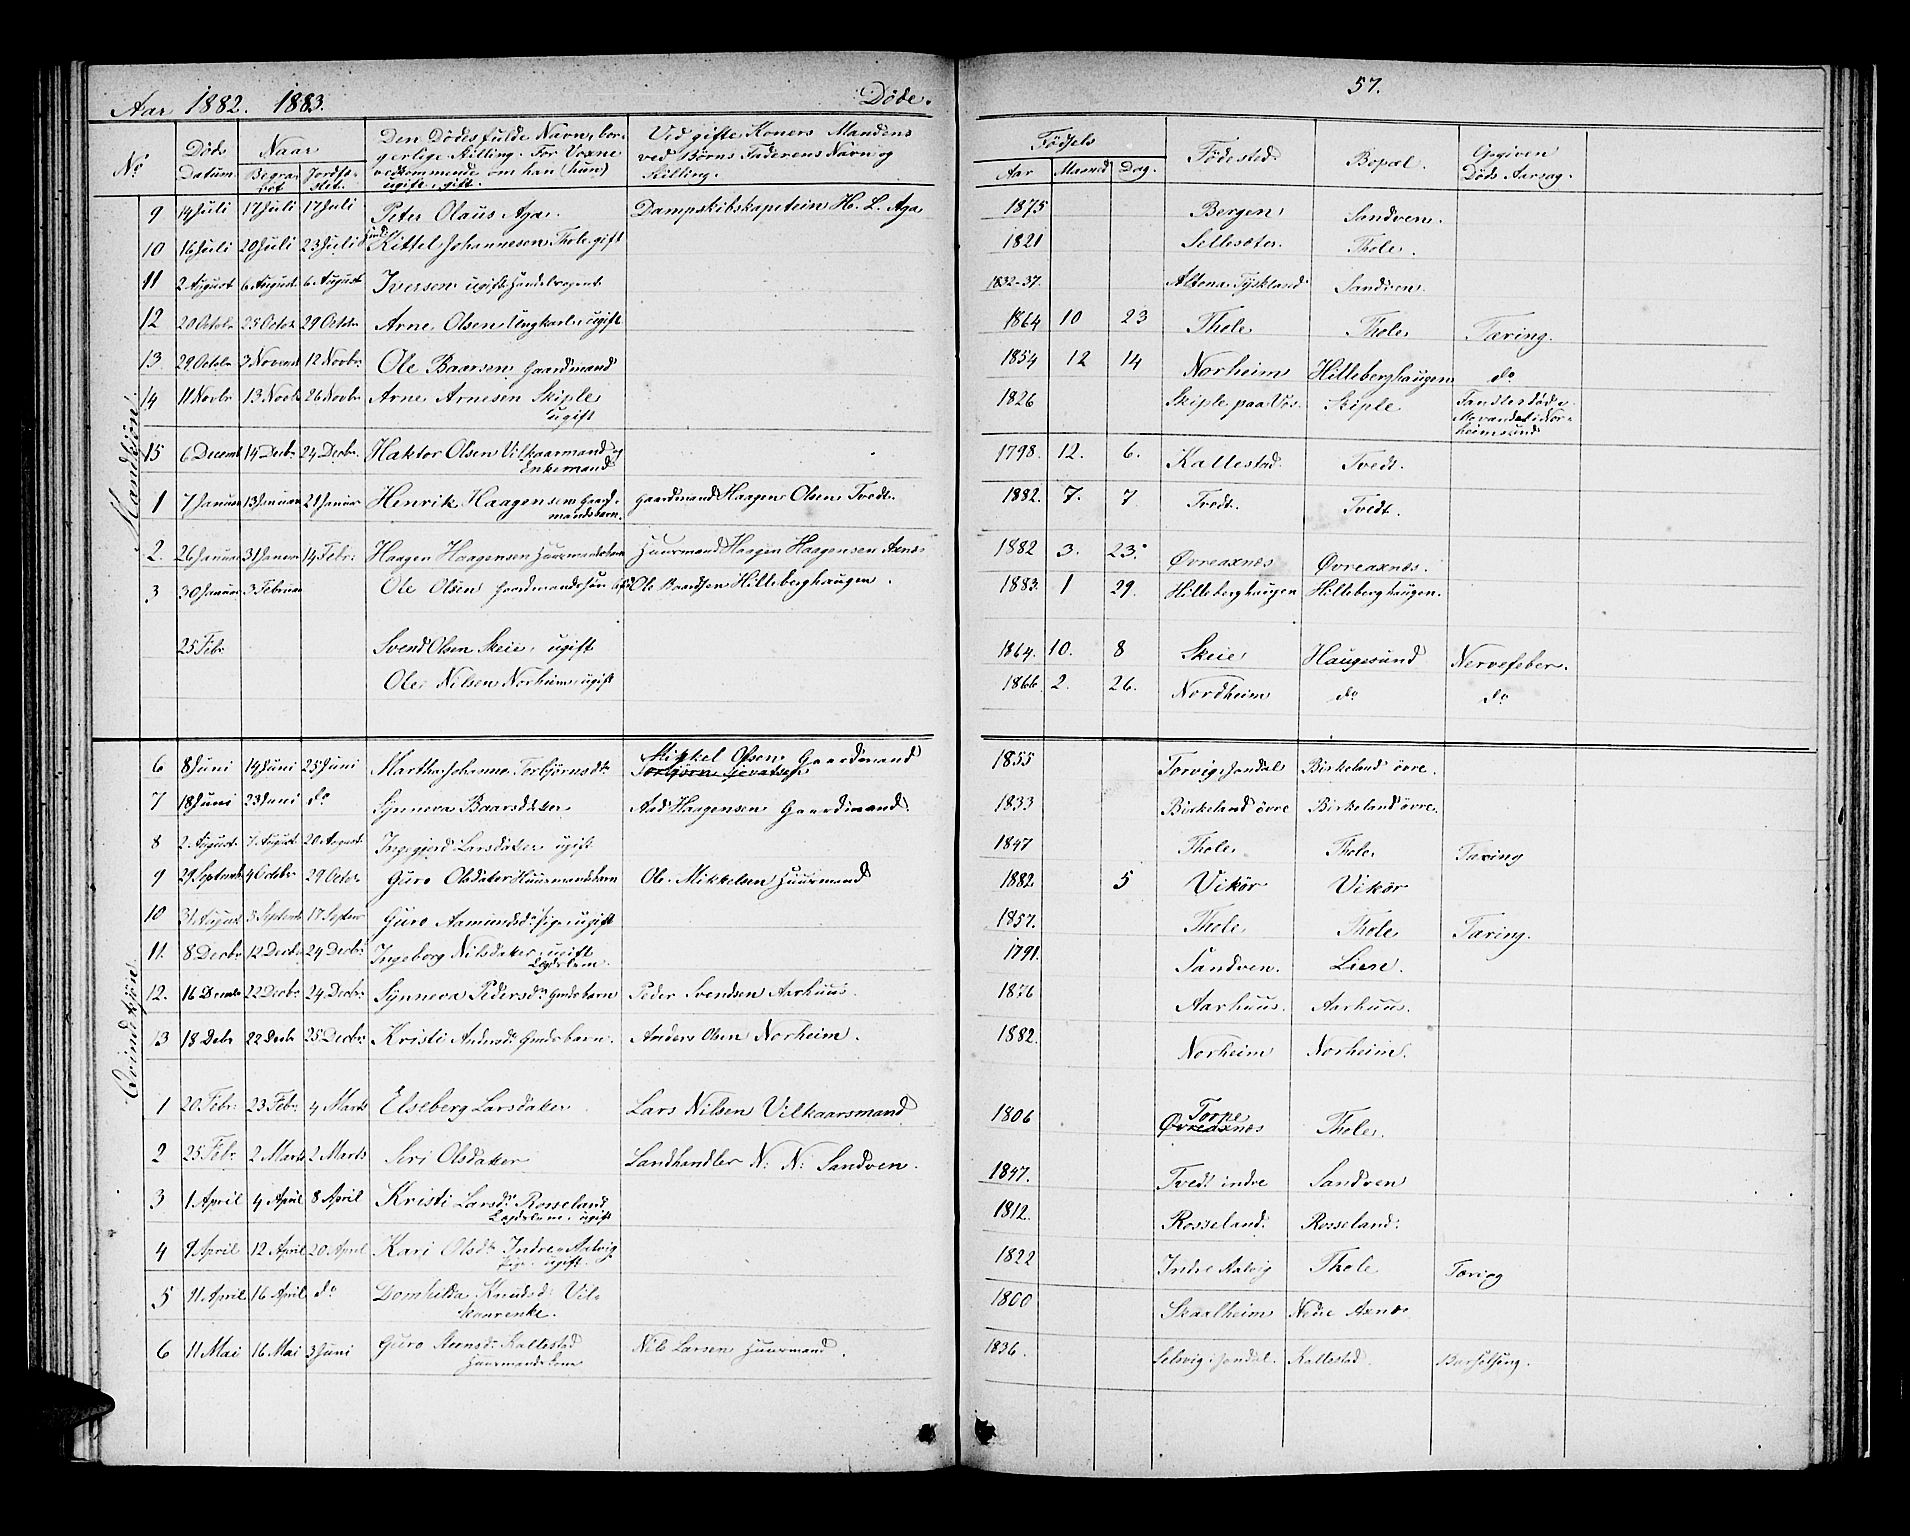 57.
Aar 1882. 1883. Døde.
No Døds Datum. Naar Begravet Jordfæstet. Den Dødes fulde Navn, borgerlige Stilling. For Voxne vedkommende om han (hun) ugift, gift. Ved gifte Koners Mandens ved Børns Faderens Navn og Stilling. Fødsels Aar Maaned Dag. Fødested. Bopæl. Opgiven Døds Aarsag.
Mandkjøn.
9 14 Juli 17 Juli 17 Juli Peter Olaus Aga. Dampskibskaptein H. L. Aga 1875 Bergen Sandven.
10 16 Juli 20 Juli 23 Juli Kittel Johannesen Thole gift 1821 Sellesæter. Thole.
11 2 August 6 August 6 August Iversen ugift Handelsagent 1832-37. Altona Tyskland Sandven.
12 20 Octobr 25 Octobr 29 Octobr Arne Olsen Ungkarl, ugift 1864 10 23 Thole Thole Tæring.
13 29 Octobr 3 Novemb 12 Novbr. Ole Baarsen Gaardmand 1854 12 14 Norheim Hilleberghaugen do
14 11 Novbr 13 Novbr 26 Novbr Arne Arnesen Skiple ugift 1826 Skiple paa Vos. Skiple Fandtes død i Movandet i Norheimsund
15 6 Decemb 14 Decbr. 24 Decbr. Haktor Olsen Vilkaarmand og Enkemand 1798. 12. 6. Kallestad. Tvedt.
1 7 Januar 13 Januar 21 Januar Henrik Haagensen Gaardmandsbarn. Gaardmand Haagen Olsen Tvedt. 1882. 7. 7 Tvedt. Tvedt.
2. 26 Januar 31 Januar 14 Febr. Haagen Haagensen Huusmandsbarn Huusmand Haagen Haagensen Axnes 1882 3. 23. Øvreaxnes Øvreaxnes.
3 30 Januar 3 Februar Ole Olsen Gaardmands Ole Baardsen Hilleberghaugen. 1883. 1 29. Hilleberghaugen Hilleberghaugen.
25 Febr. Svend Olsen Skeie, ugift 1864. 10. 8 Skeie Haugesund Nervefeber.
Ole Nilsen Norheim, ugift 1866 2. 26. Nordheim do do
Qvindekjøn.
6 8 Juni 14 Juni 25 Juni Martha Johanna Torbjørnsdtr Mikkel Olsen Gaardmand 1855 Torvig, Jondal Birkeland øvre.
Torbjørn Sjovatsen
7 18 Juni 23 Juni do Synneva Baarsdatter Aad Haagensen Gaardmand. 1833 Birkeland øvre Birkeland øvre.
8 2 August. 7 August. 20 August. Ingegjerd Larsdatter ugift 1847 Thole. Thole Tæring
9 29 Septembr 4 Octobr 29 Octobr Guro Olsdatter Huusmandsbarn Ole Mikkelsen Huusmand 1882. 5 Vikør Vikør
10 31 August 5 Septembr 17 Septbr Guro Aamundsdr Pige, ugift 1857. Thole Thole Tæring.
11. 8 Decbr 12 Decbr 24 Decbr. Ingeborg Nilsdatter, ugift Lægdslem. 1791. Sandven. Liere.
12. 16 Decembr 22 Decbr. 24 Decbr. Synneva Pedersdr Gmdsbarn Peder Svendsen Aarhuus. 1876 Aarhuus. Aarhuus.
13 18 Decbr 22 Decbr 25 Decbr. Kristi Andersdr Gmdsbarn. Anders Olsen Norheim. 1882. Norheim Norheim.
1 20 Febr. 23 Febr. 4 Marts Elseberg Larsdatter Lars Nilsen Vilkaarsmand 1806 Torpe Øvreaxnes Thole.
2 25 Febr. 2 Marts 2 Marts Siri Olsdatter Landhandler N: N: Sandven. 1847. Tvedt indre Sandven
3 1 April 4 April 8 April Kristi Larsdr Rosseland Lægdslem, ugift 1812. Rosseland. Rosseland.
4 9 April 12 April 20 April Kari Olsdtr Indre Aalvig Pige ugift. 1822 Indre Aalvig Thole Tæring
5 11 April 16 April do Domhilda Knudsd: Vilkaarenke. 1800 Skaalheim Nedre Axnæs
6 11 Mai 16 Mai 3 Juni Guro Steensd: Kallestad Huusmandskone Nils Larsen Huusmand. 1836. Selsvig, Jondal. Kallestad. Barselseng.